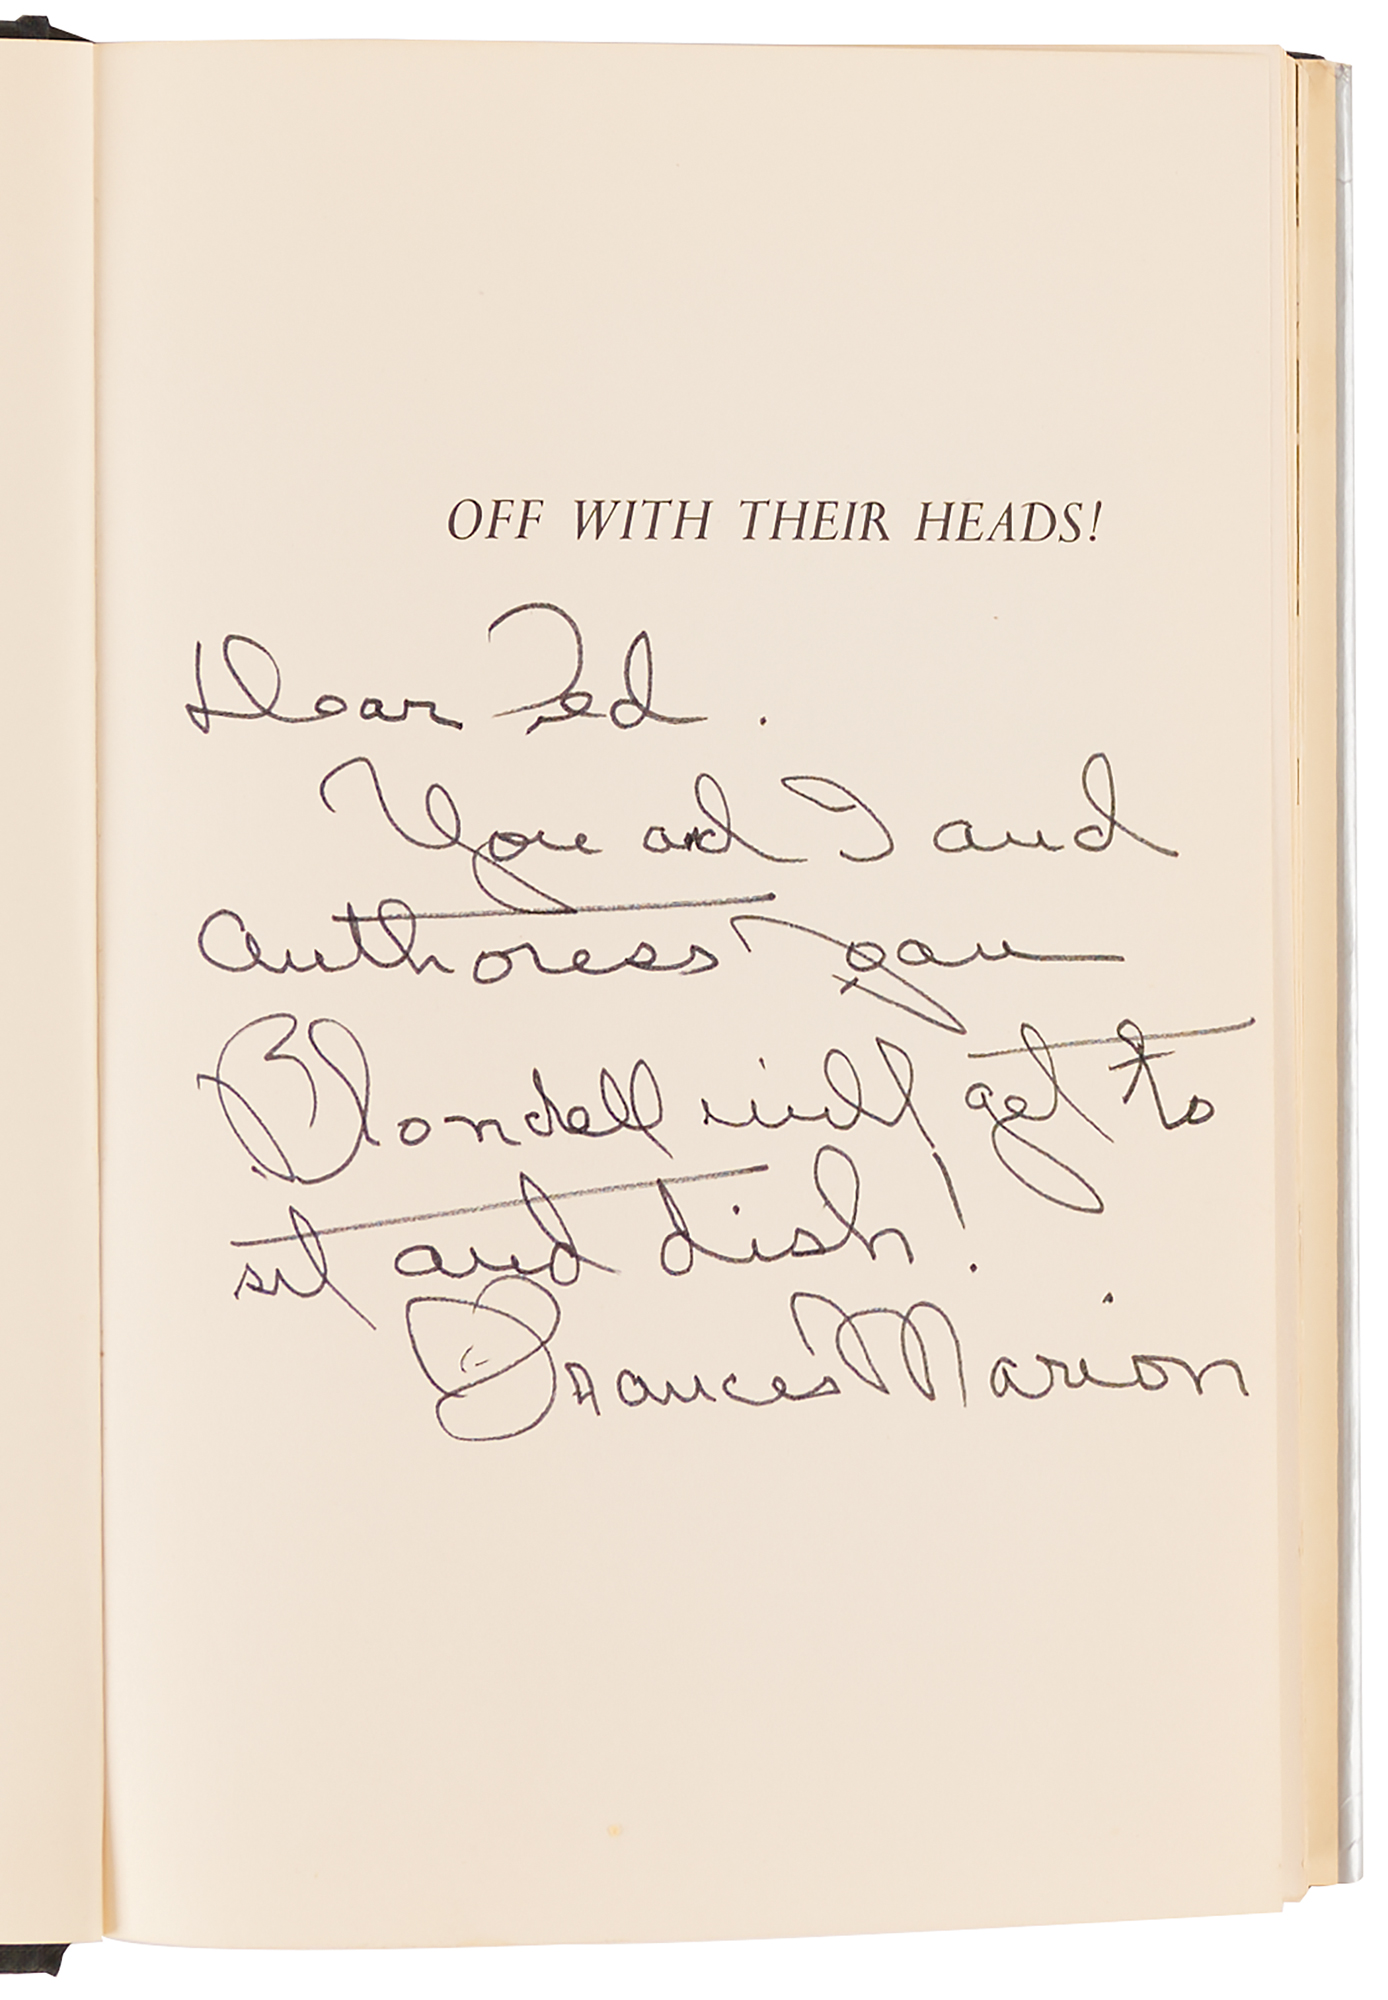 OFF WITH THEIR HEADS!
Dear Ted.
You and I and
authoress Joan
Blondell will get to
sit and dish!
Frances Marion